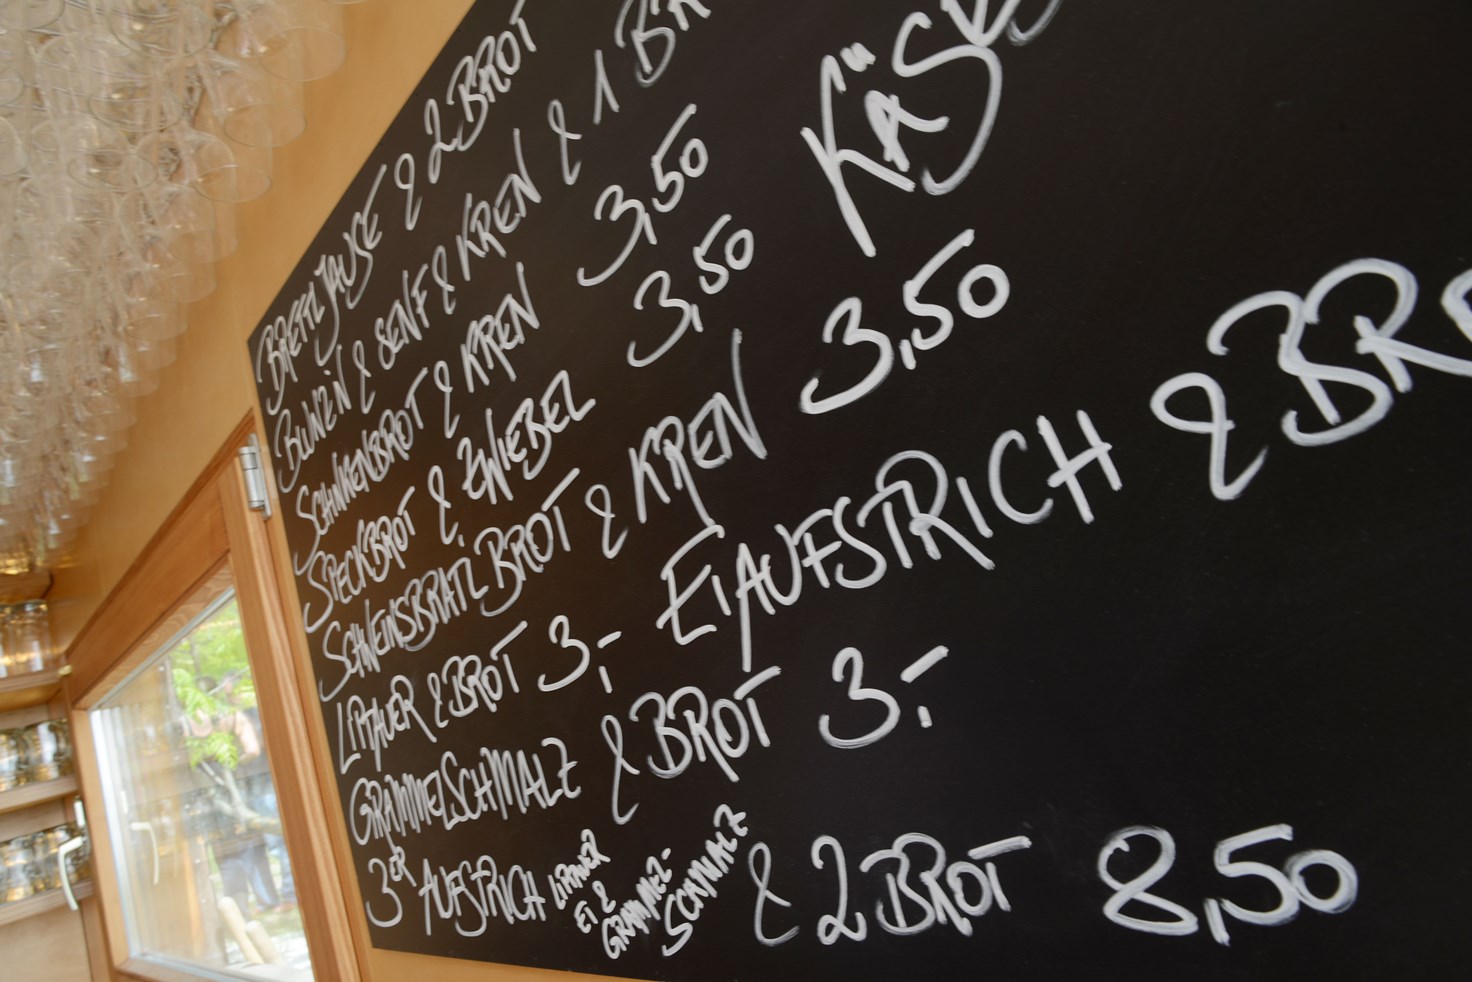 BRETTLJAUSE & 2 BROT
BLUNZ'N & SENF & KREN & 1 BR
SCHINKENBROT & KREN 3,50 KÄSE
SPECKBROT & ZWIEBEL 3,50
SCHWEINSBRATLBROT & KREN 3,50
LIPTAUER & BROT 3,- EIAUFSTRICH & BR
GRAMMELSCHMALZ & BROT 3,-
3ER AUFSTRICH LIPTAUER EI & GRAMMEL-SCHMALZ & 2 BROT 8,50